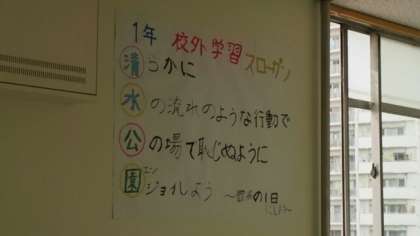 1年 校外学習 スローガン
清らかに
水の流れのような行動で
公の場で恥じぬように
園ジョイしよう 〜
エン
の1日